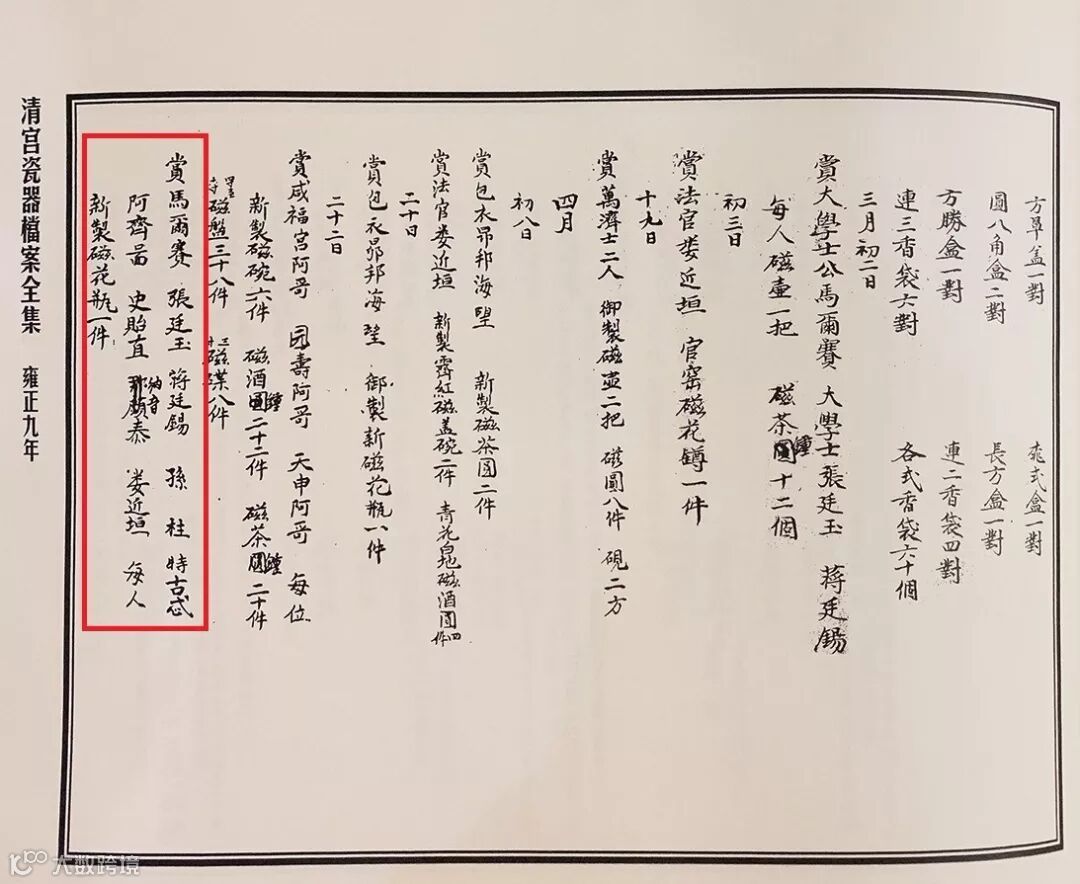 方罩盖一對
圓八角盒二對
方勝盒一對
連三香袋六對
桃式盒一對
長方盒一對
連二香袋四對
各式香袋六十個
三月初二日
賞大學士公馬爾賽 大學士張廷玉 蔣廷錫
每人磁壺一把 磁茶圓鍾十二個
初三日
賞法官婁近垣 官窑磁花罇一件
十九日
賞萬濟士二人 御製磁壺二把 磁圓八件 硯二方
四月
初八日
賞包衣昂邦海望 新製磁茶圓二件
賞法官婁近垣 新製霽紅磁盖碗二件 青花白地磁酒圓四件
二十日
賞包衣昂邦海望 御製新磁花瓶一件
二十二日
賞咸福宫阿哥 园壽阿哥 天申阿哥 每位
新製磁碗六件 磁酒圓鍾二十二件 磁茶圓鍾二十件
磁盤三十八件 磁碟八件
賞馬爾賽 張廷玉 蔣廷錫 孫柱 特古忒
阿齊啚 史貽直 納音 顏泰 婁近垣 每人
新製磁花瓶一件
清宫瓷器檔案全集 雍正九年
大数跨境